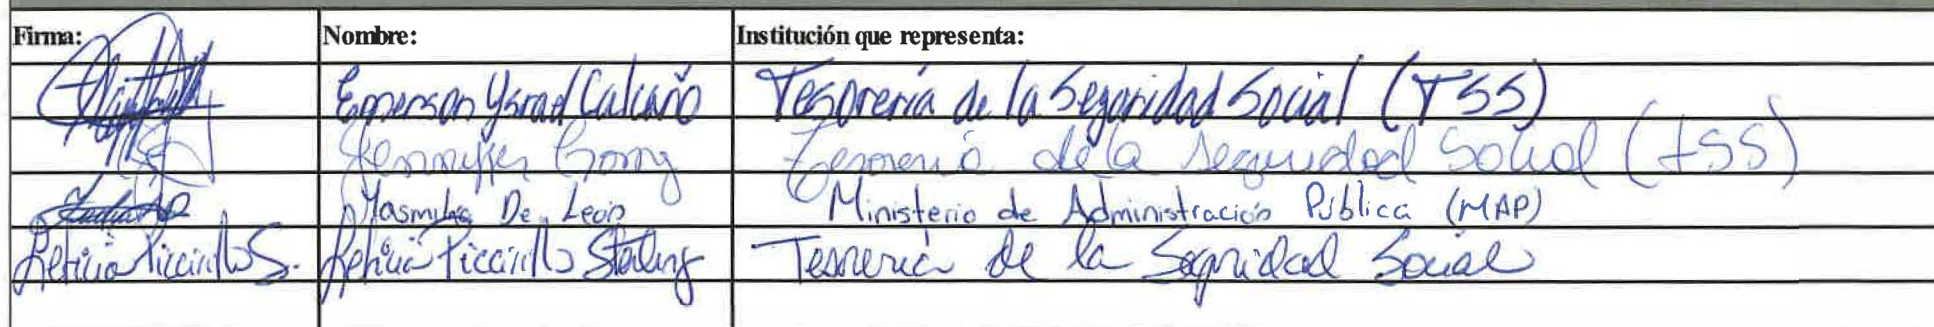 Firma: Nombre: Institución que representa:
Emerson Ysrael Calcaño Tesorería de la Seguridad Social (TSS)
Jennyffer Tesoreria de la seguridad Social (tSS)
De León Ministerio de Administración Pública (MAP)
Leticia Piccirillo S. Leticia Piccirillo Tesorería de la Seguridad Social